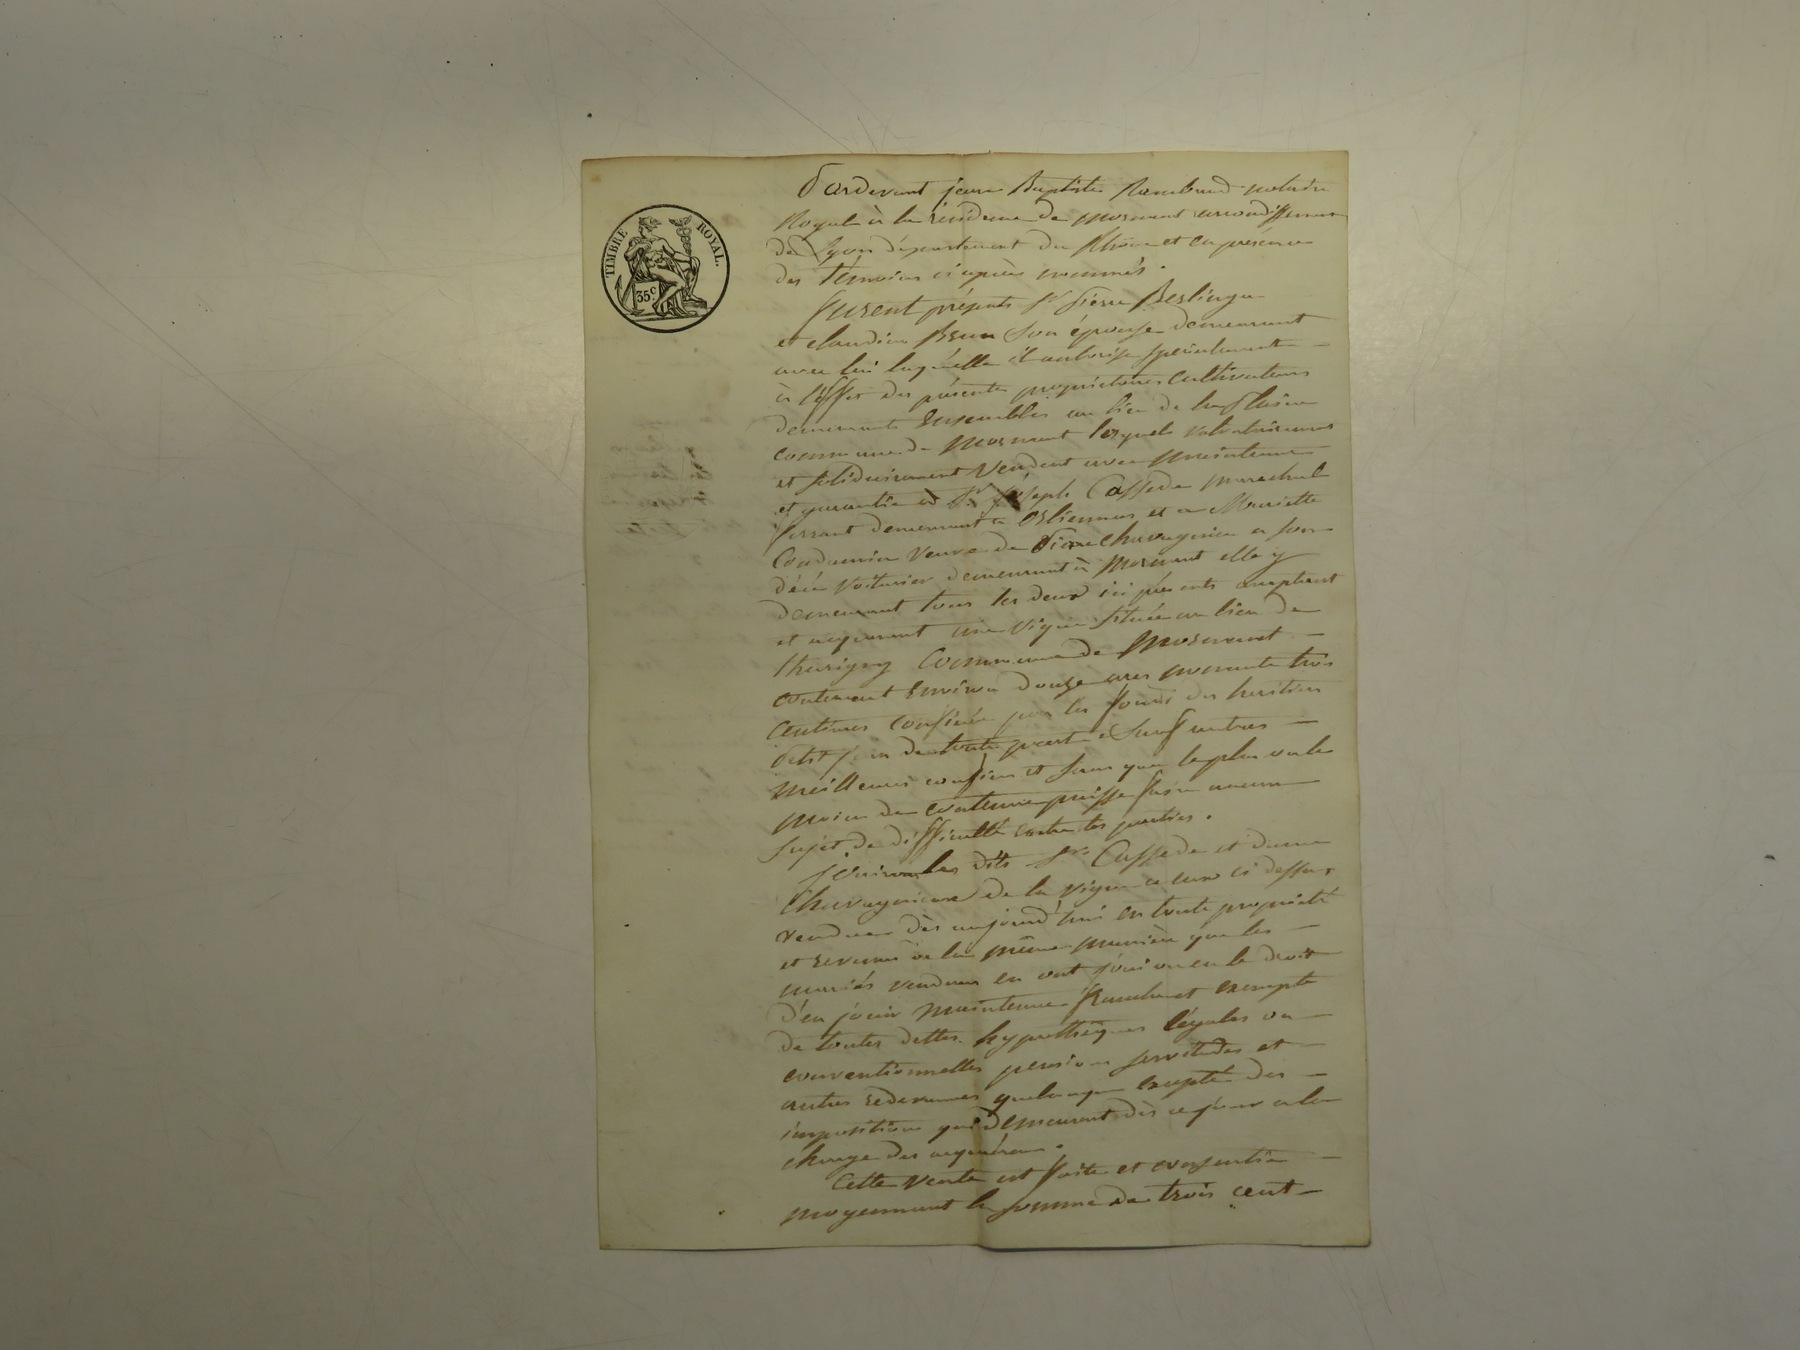 TIMBRE ROYAL.
35c
Pardevant jean Baptiste notaire
Royal à la résidence de mornant arrondissement
de Lyon département du Rhône et en présence
des témoins ci après nommés.
furent présents Sr pierre Berlinga
et claudine Brun son épouse demeurant
avec lui laquelle il autorise spécialement
à l'effet des présentes propriétaires cultivateurs
demeurants Ensembles au lieu de la plaine
commune de mornant lesquels volontairement
et solidairement vendent avec maintenue
et garantie à Sr joseph Caffede marechal
ferrant demeurant à Orliennas et a Mariette
Condamin veuve de pierre Chavagnieu a son
décé voiturier demeurant à mornant elle y
demeurant tous les deux ici présents acceptant
et acquerant une vigne située au lieu de
thurigny Commune de Mornant
contenant Environ douze ares trois
Centiares confinée par les fonds des heritiers
de toute part Sauf autres
meilleurs confins et sans que le plus ou le
moin de contenue puisse faire aucun
sujet de difficulté entre les parties.
jouiron les dits Srs Caffede et dame
Chavagnieux de la vigne a eux ci dessus
vendue dès aujourd'hui en toute propriété
et revenus de la même manière que les
mariés vendeurs en ont joui ou eu le droit
d'en jouir maintenue franche et exempte
de toutes dettes hypothèques légales ou
conventionnelles pension servitudes et
autres redevances quelconque excepté des
imposition qui demeurent dès ce jour a la
charge des acquéreur.
Cette vente est faite et consentie
moyennant la somme de trois cent